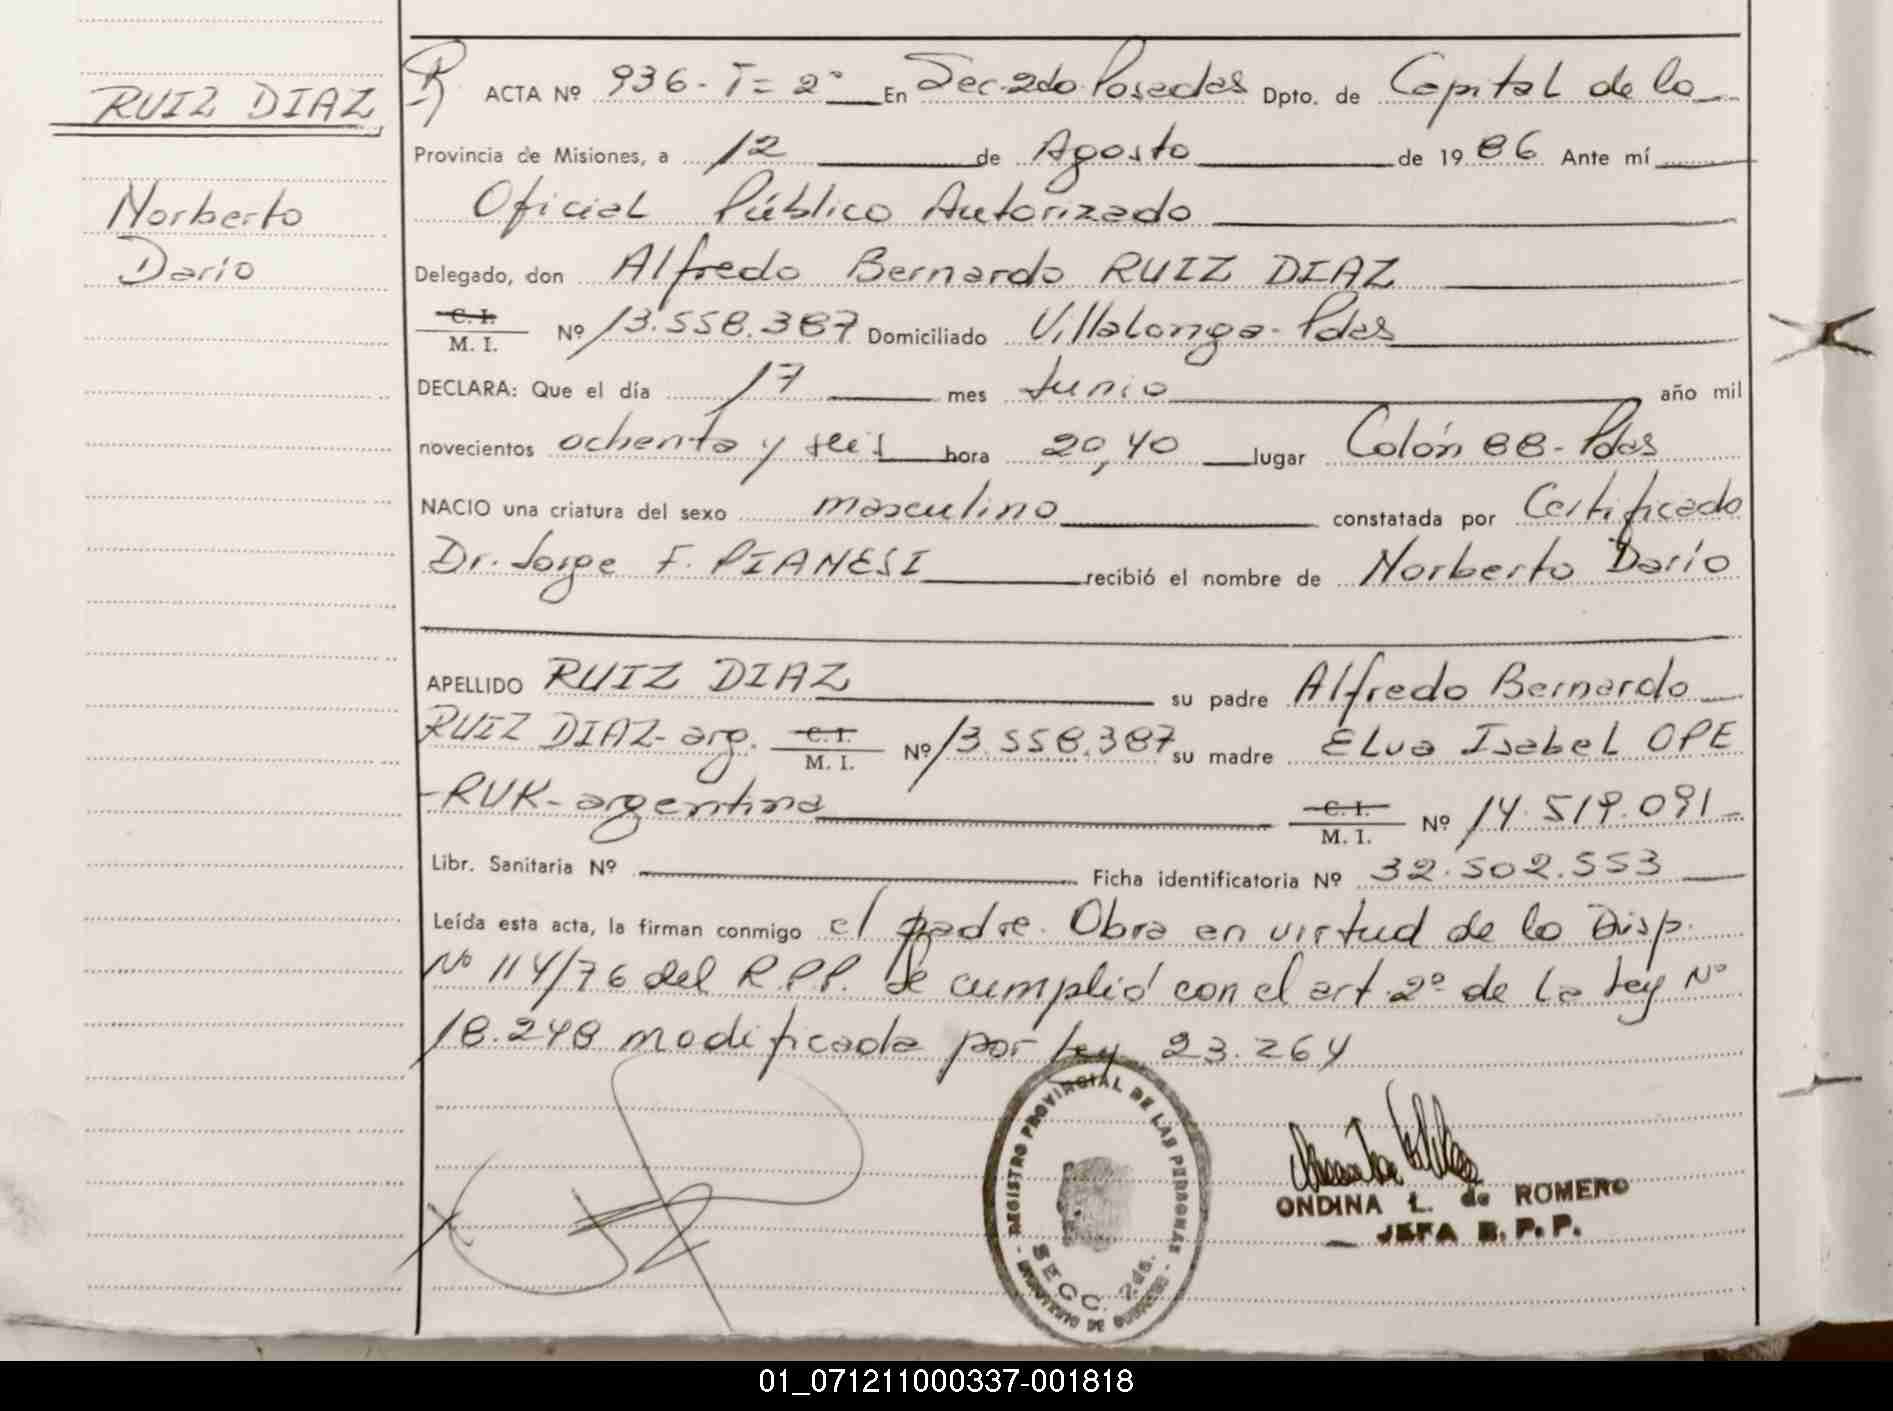 RUIZ DIAZ
Norberto
Darío
ACTA Nº 936-T=2º En Sec. 2do Posadas Dpto. de Capital de la
Provincia de Misiones, a 12 de Agosto de 1986 Ante mí
Oficial Público Autorizado
Delegado, don Alfredo Bernardo RUIZ DIAZ
C. I.
M. I. Nº 13.558.387 Domiciliado Villalonga-Pdas
DECLARA: Que el día 17 mes Junio año mil
novecientos ochenta y seis hora 20,40 lugar Colón 88-Pdas
NACIO una criatura del sexo masculino constatada por Certificado
Dr. Jorge F. PIANESI recibió el nombre de Norberto Darío
APELLIDO RUIZ DIAZ su padre Alfredo Bernardo
RUIZ DIAZ-arg. C. I. M. I. Nº 13.558.387 su madre Elva Isabel OPE
-RUK-argentina C. I. M. I. Nº 14.519.091-
Libr. Sanitaria Nº Ficha identificatoria Nº 32.502.553
Leída esta acta, la firman conmigo el padre. Obra en virtud de la Disp.
Nº 114/76 del R.P.P. Se cumplió con el art. 2º de la Ley Nº
18.248 modificada por Ley 23.264
REGISTRO PROVINCIAL DE LAS PERSONAS
SECC. 2da.
- MINISTERIO DE GOBIERNO -
ONDINA L. de ROMERO
JEFA R. P. P.
01_071211000337-001818